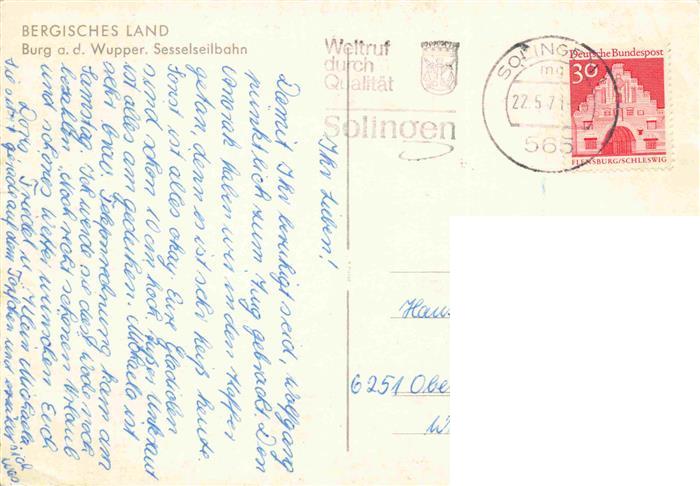 BERGISCHES LAND
Burg a. d. Wupper. Sesselseilbahn
Weltruf
durch
Qualität
Solingen
SOLINGEN
mg
22.5.71
565
Deutsche Bundespost
30
FLENSBURG/SCHLESWIG
Ihr Lieben!
Damit Ihr beruhigt seid, Wolfgang
pünktlich zum Zug gebracht. Den
Anorak haben wir in den Koffer
getan, denn es ist sehr heiß heute.
Sonst ist alles okay. Eure Gladiolen
sind schon 10 cm hoch, außer Unkraut
ist alles am gedeihen. Michaela ist
Telefonrechnung kam am
Samstag. Ich werde sie
bezahlen. Noch recht schönen Urlaub
und schönes Wetter wünschen Euch
Dora, Friedel u. Klein Michaela
sie sitzt g auf dem Töpfchen und
Haus
6251 Obe
W